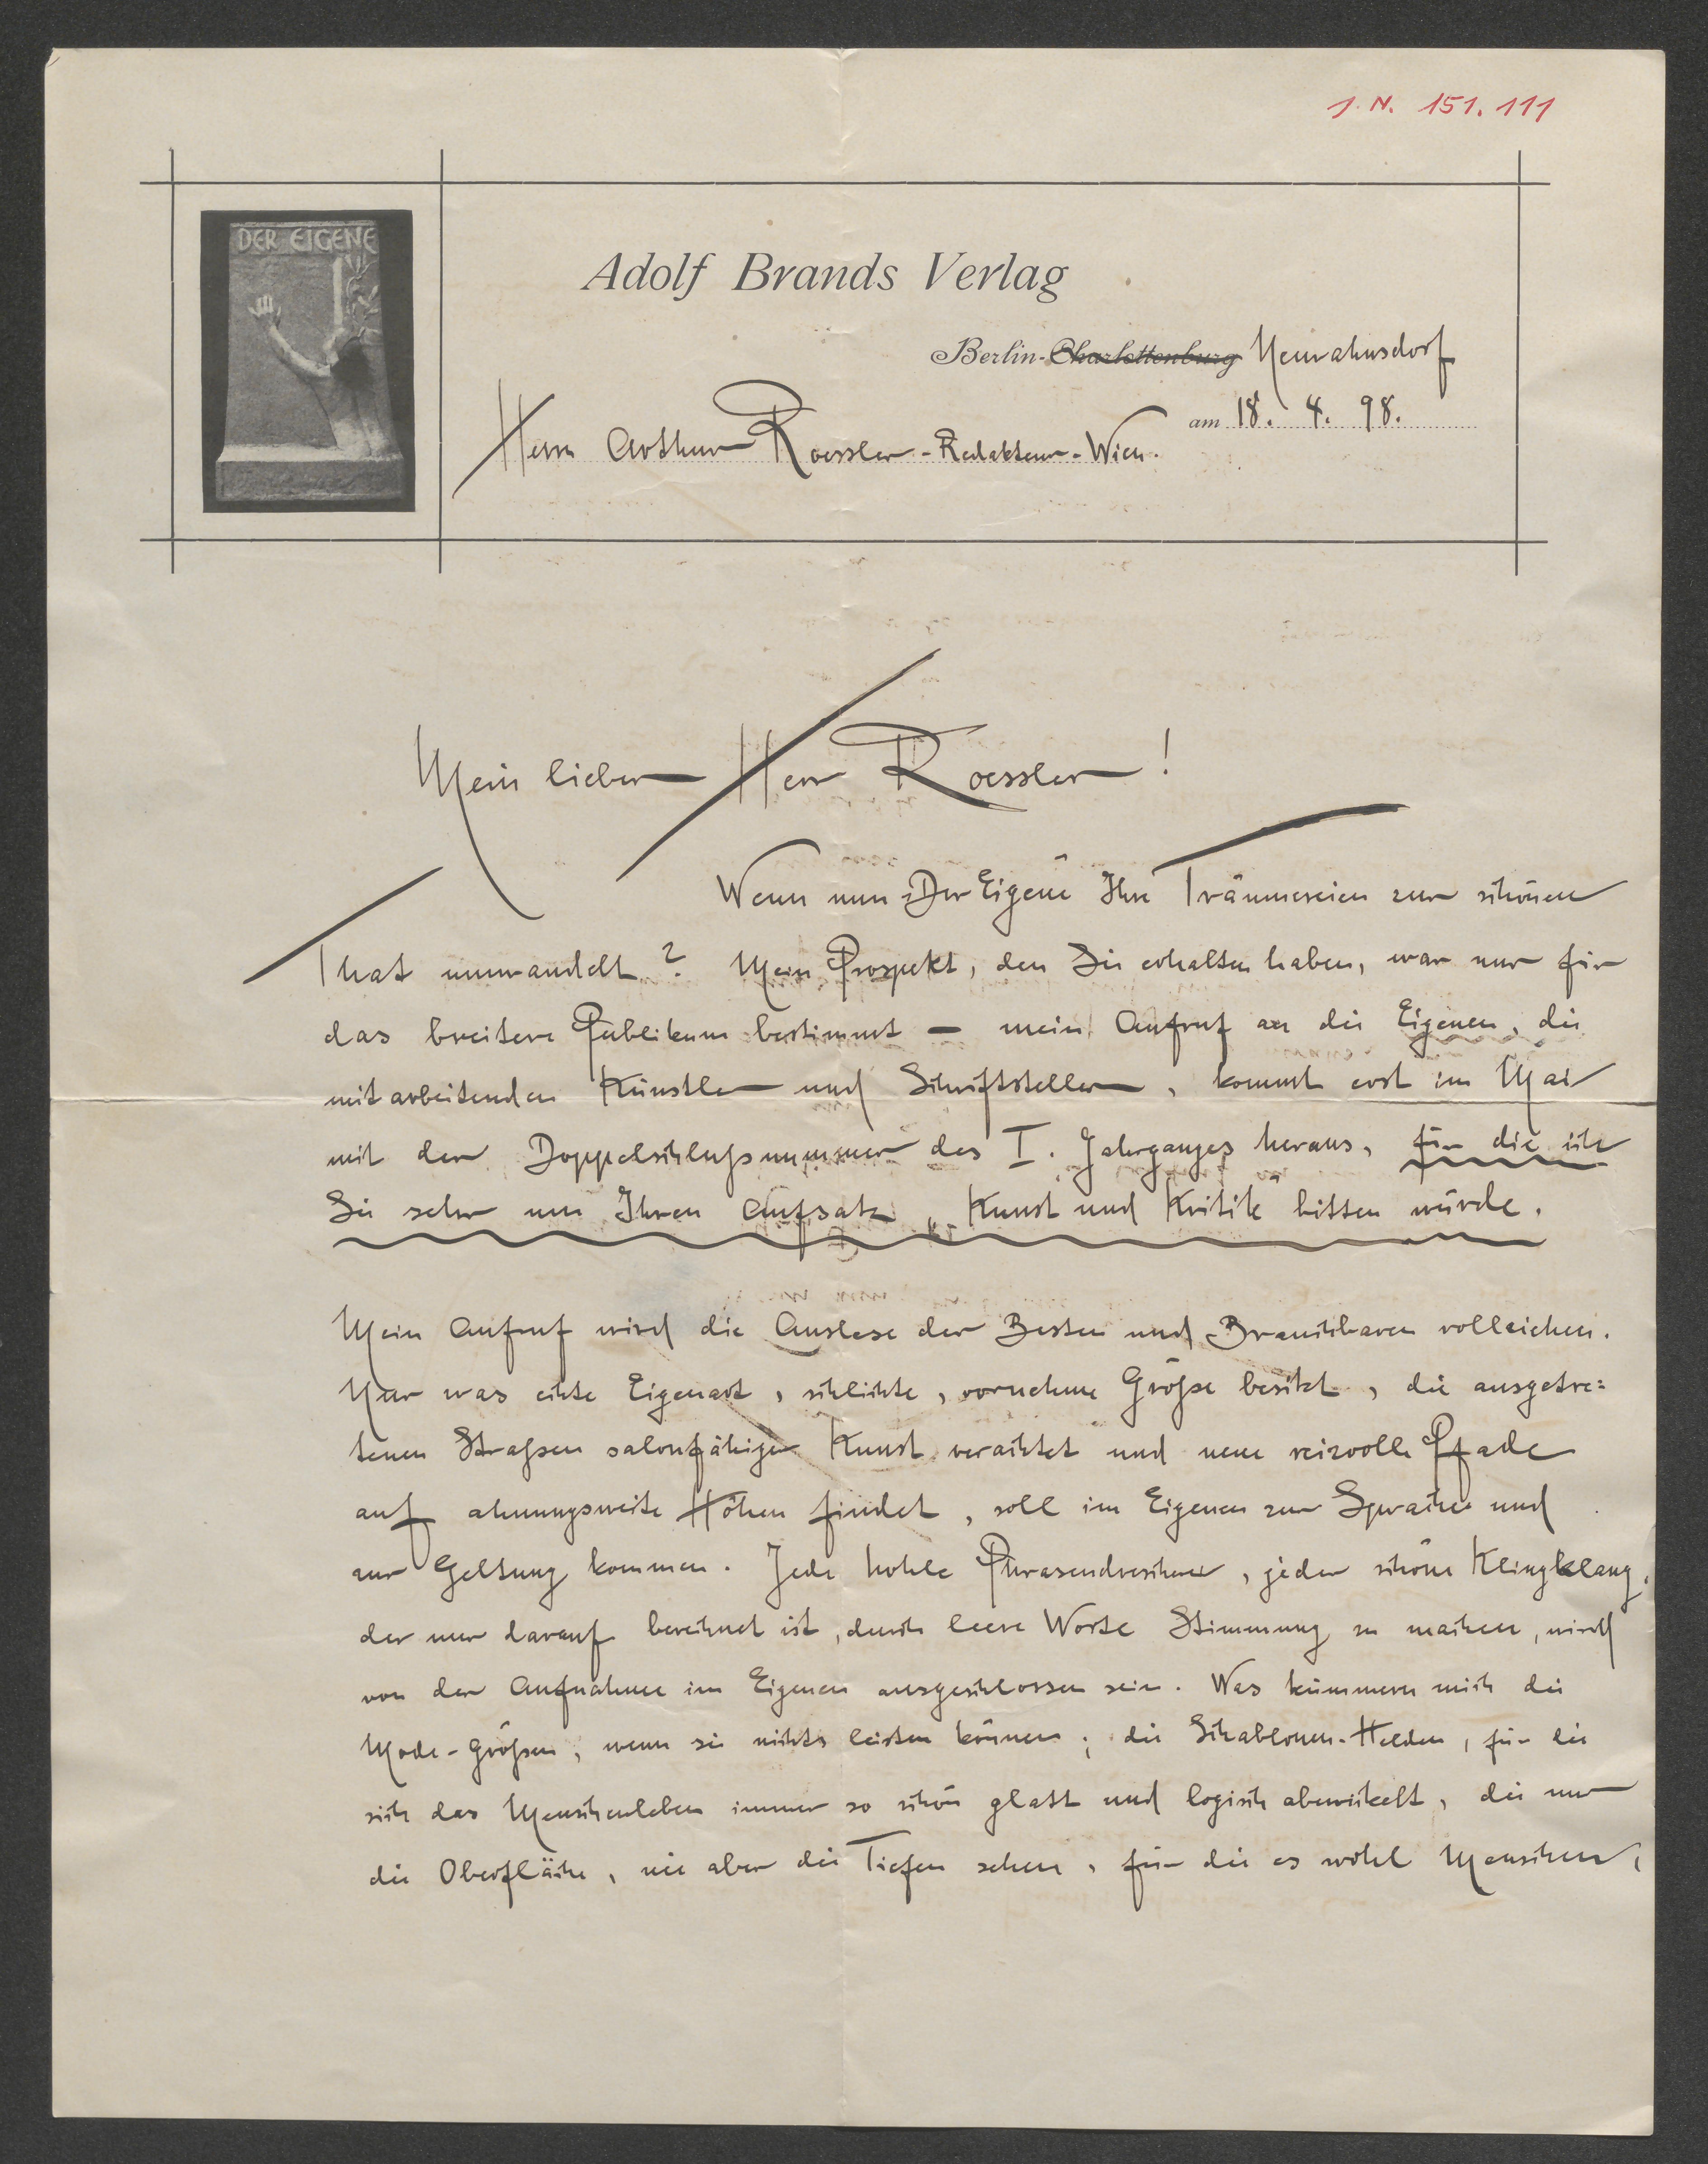 J. N. 151.111
DER EIGENE
Adolf Brands Verlag
Berlin-Charlottenburg Neurahnsdorf
am 18. 4. 98.
Herrn Arthur Roessler - Redakteur - Wien.
Mein lieber Herr Roessler!
Wenn nun „Der Eigene“ Ihre Träumereien zur schönen
That umwandelt? Mein Prospekt, den Sie erhalten haben, war nur für
das breitere Publikum bestimmt — mein Aufruf an die Eigenen, die
mitarbeitenden Künstler und Schriftsteller, kommt erst im Mai
mit der Doppelschlußnummer des I. Jahrganges heraus, für die ich
Sie sehr um Ihren Aufsatz „Kunst und Kritik“ bitten würde.
Mein Aufruf wird die Auslese der Besten und Brauchbaren vollziehen.
Nur was echte Eigenart, schlichte, vornehme Größe besitzt, die ausgetre=
tenen Straßen salonfähiger Kunst verachtet und neue reizvolle Pfade
auf ahnungsweite Höhen findet, soll im Eigenen zur Sprache und
zur Geltung kommen. Jede hohle Phrasendrescherei, jeder schöne Klingklang,
der nur darauf berechnet ist, durch leere Worte Stimmung zu machen, wird
von der Aufnahme im Eigenen ausgeschlossen sein. Was kümmern mich die
Mode-Größen, wenn sie nichts leisten können; die Schablonen-Helden, für die
sich das Menschenleben immer so schön glatt und logisch abwickelt, die nur
die Oberfläche, nie aber die Tiefen sehen, für die es wohl Menschen,